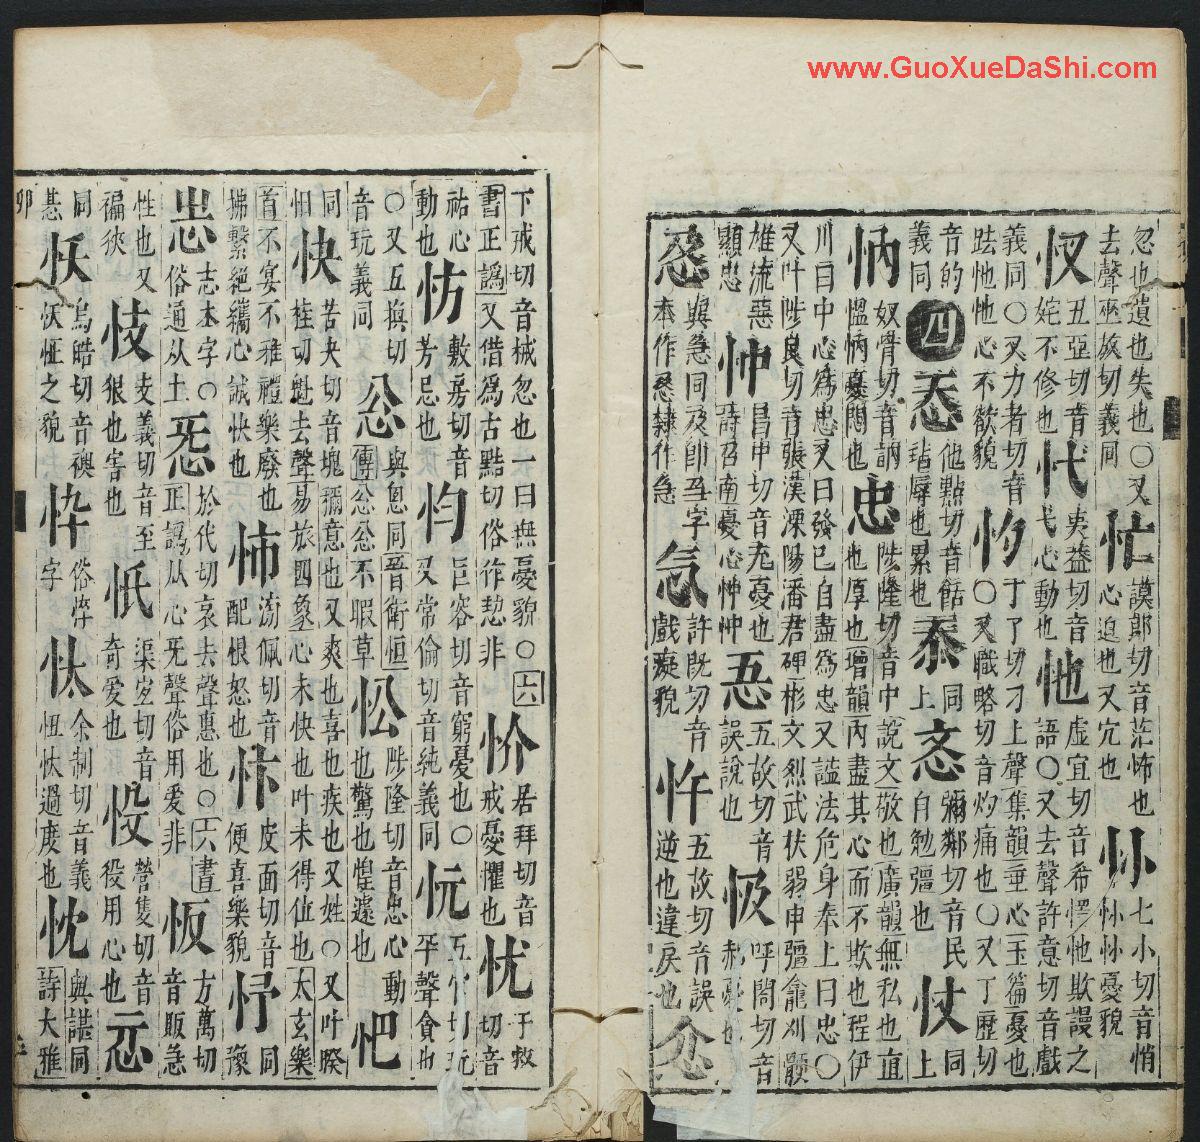 忽也遺也失也○又去聲巫放切義同 忙 謨郎切音茫怖也心迫也又宂也 七小切音悄憂貌
丑亞切音姹不修也 夷益切音弋心動也 忚 虛宜切音希㦍忚欺謾之語○又去聲許意切音戲
義同○又力者切音忚忚心不欲貌 丁了切刁上聲集韻垂心玉篇憂也○又職略切音灼痛也○又丁歷切
音的義同 四 忝 他點切音餂玷辱也累也 同上 忞 彌鄰切音民自勉彊也 同上
奴骨切音訥愠憂悶也 忠 陟隆切音中說文敬也廣韻無私也直也厚也增韻內盡其心而不欺也程伊
川曰中心為忠又曰發已自盡為忠又謚法危身奉上曰忠○又叶陟良切音張漢溧陽潘君碑彬文烈武扶弱申彊龕刈骾
雄流惡顯忠 忡 昌中切音充憂也詩召南憂心忡忡 忢 五故切音誤說也 忣 呼問切音憂也
與急同及卽字本作隸作急 忥 許旣切音戲癡貌 忤 五故切音誤逆也違戾也
下戒切音械忽也一曰無憂貌○六書正譌又借為古黠切俗作恝非 忦 居拜切音戒憂懼也 忧 于救切音
祐心動也 㤃 敷房切音芳忌也 巨容切音窮憂也○又常倫切音純義同 忨 五官切玩平聲貪也
○又五換切音玩義同 忩 與息同晉衛恒傳忩忩不暇草 忪 陟隆切音忠心動也驚也惶遽也
同怕 快 苦夬切音塊意也又爽也喜也疾也又姓○又叶睽桂切魁去聲易旅四象心未快也叶未得位也太玄樂
首不宴不雅禮樂廢也拂繫絕纗心誠快也 㤄 滂佩切音配根怒也 忭 皮面切音便喜樂貌 忬 同豫
志本字○俗通从土 㤅 於代切哀去聲惠也○六書正譌从心旡聲俗用愛非 方萬切音販急
性也又褊狹 忮 支義切音至很也害也 忯 渠宜切音奇愛也 營隻切音役用心也 忈
同惎 烏皓切音襖忹之貌 忰 俗悴字 忕 余制切音義忸忕過度也 忱 與諶同詩大雅
卯
www.GuoXueDaShi.com